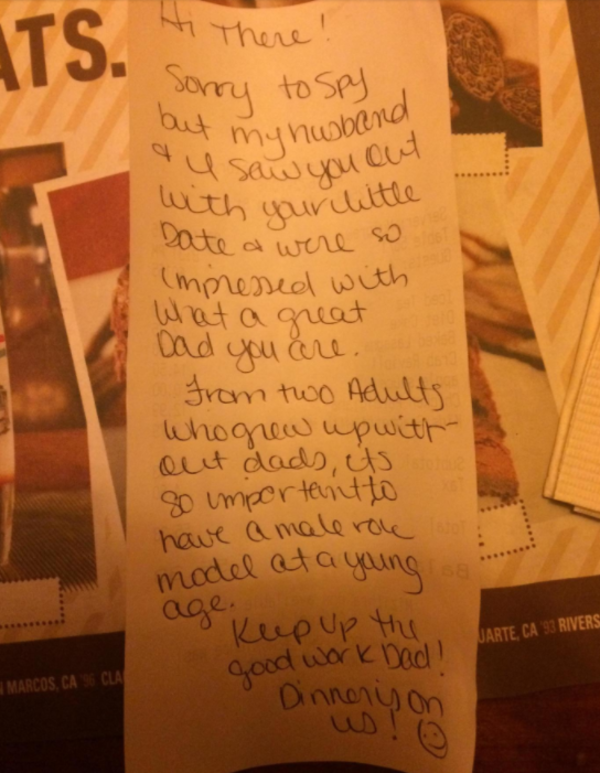 ATS.
Hi There!
Sorry to spy
but my husband
& I saw you out
with your little
Date & were so
impressed with
what a great
Dad you are.
From two Adults
who grew up with-
out dads, its
so important to
have a male role
model at a young
age.
Keep up the
good work Dad!
Dinner is on
us! ☺
N MARCOS, CA '96 CLA
UARTE, CA '93 RIVERS